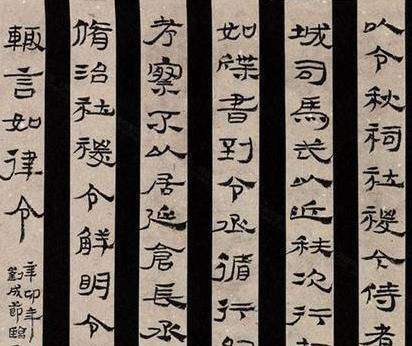 以令秋祠社稷今侍者
城司馬長以近秩次行
如牒書到令丞循行
考察不以居延倉長丞
脩治社稷令鮮明令
輒言如律令
辛卯年
劉成節臨